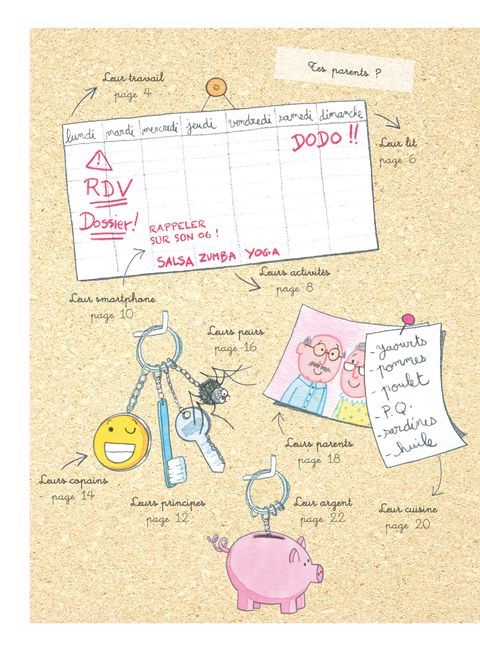 Tes parents ?
Leur travail
page 4
lundi mardi mercredi jeudi vendredi samedi dimanche
DODO !!
Leur lit
page 6
RDV
Dossier !
RAPPELER
SUR SON 06 !
SALSA ZUMBA YOGA
Leurs activités
page 8
Leur smartphone
page 10
Leurs peurs
page 16
- yaourts
- pommes
- poulet
- P.Q.
- sardines
- huile
Leurs parents
page 18
Leurs copains
page 14
Leurs principes
page 12
Leur argent
page 22
Leur cuisine
page 20